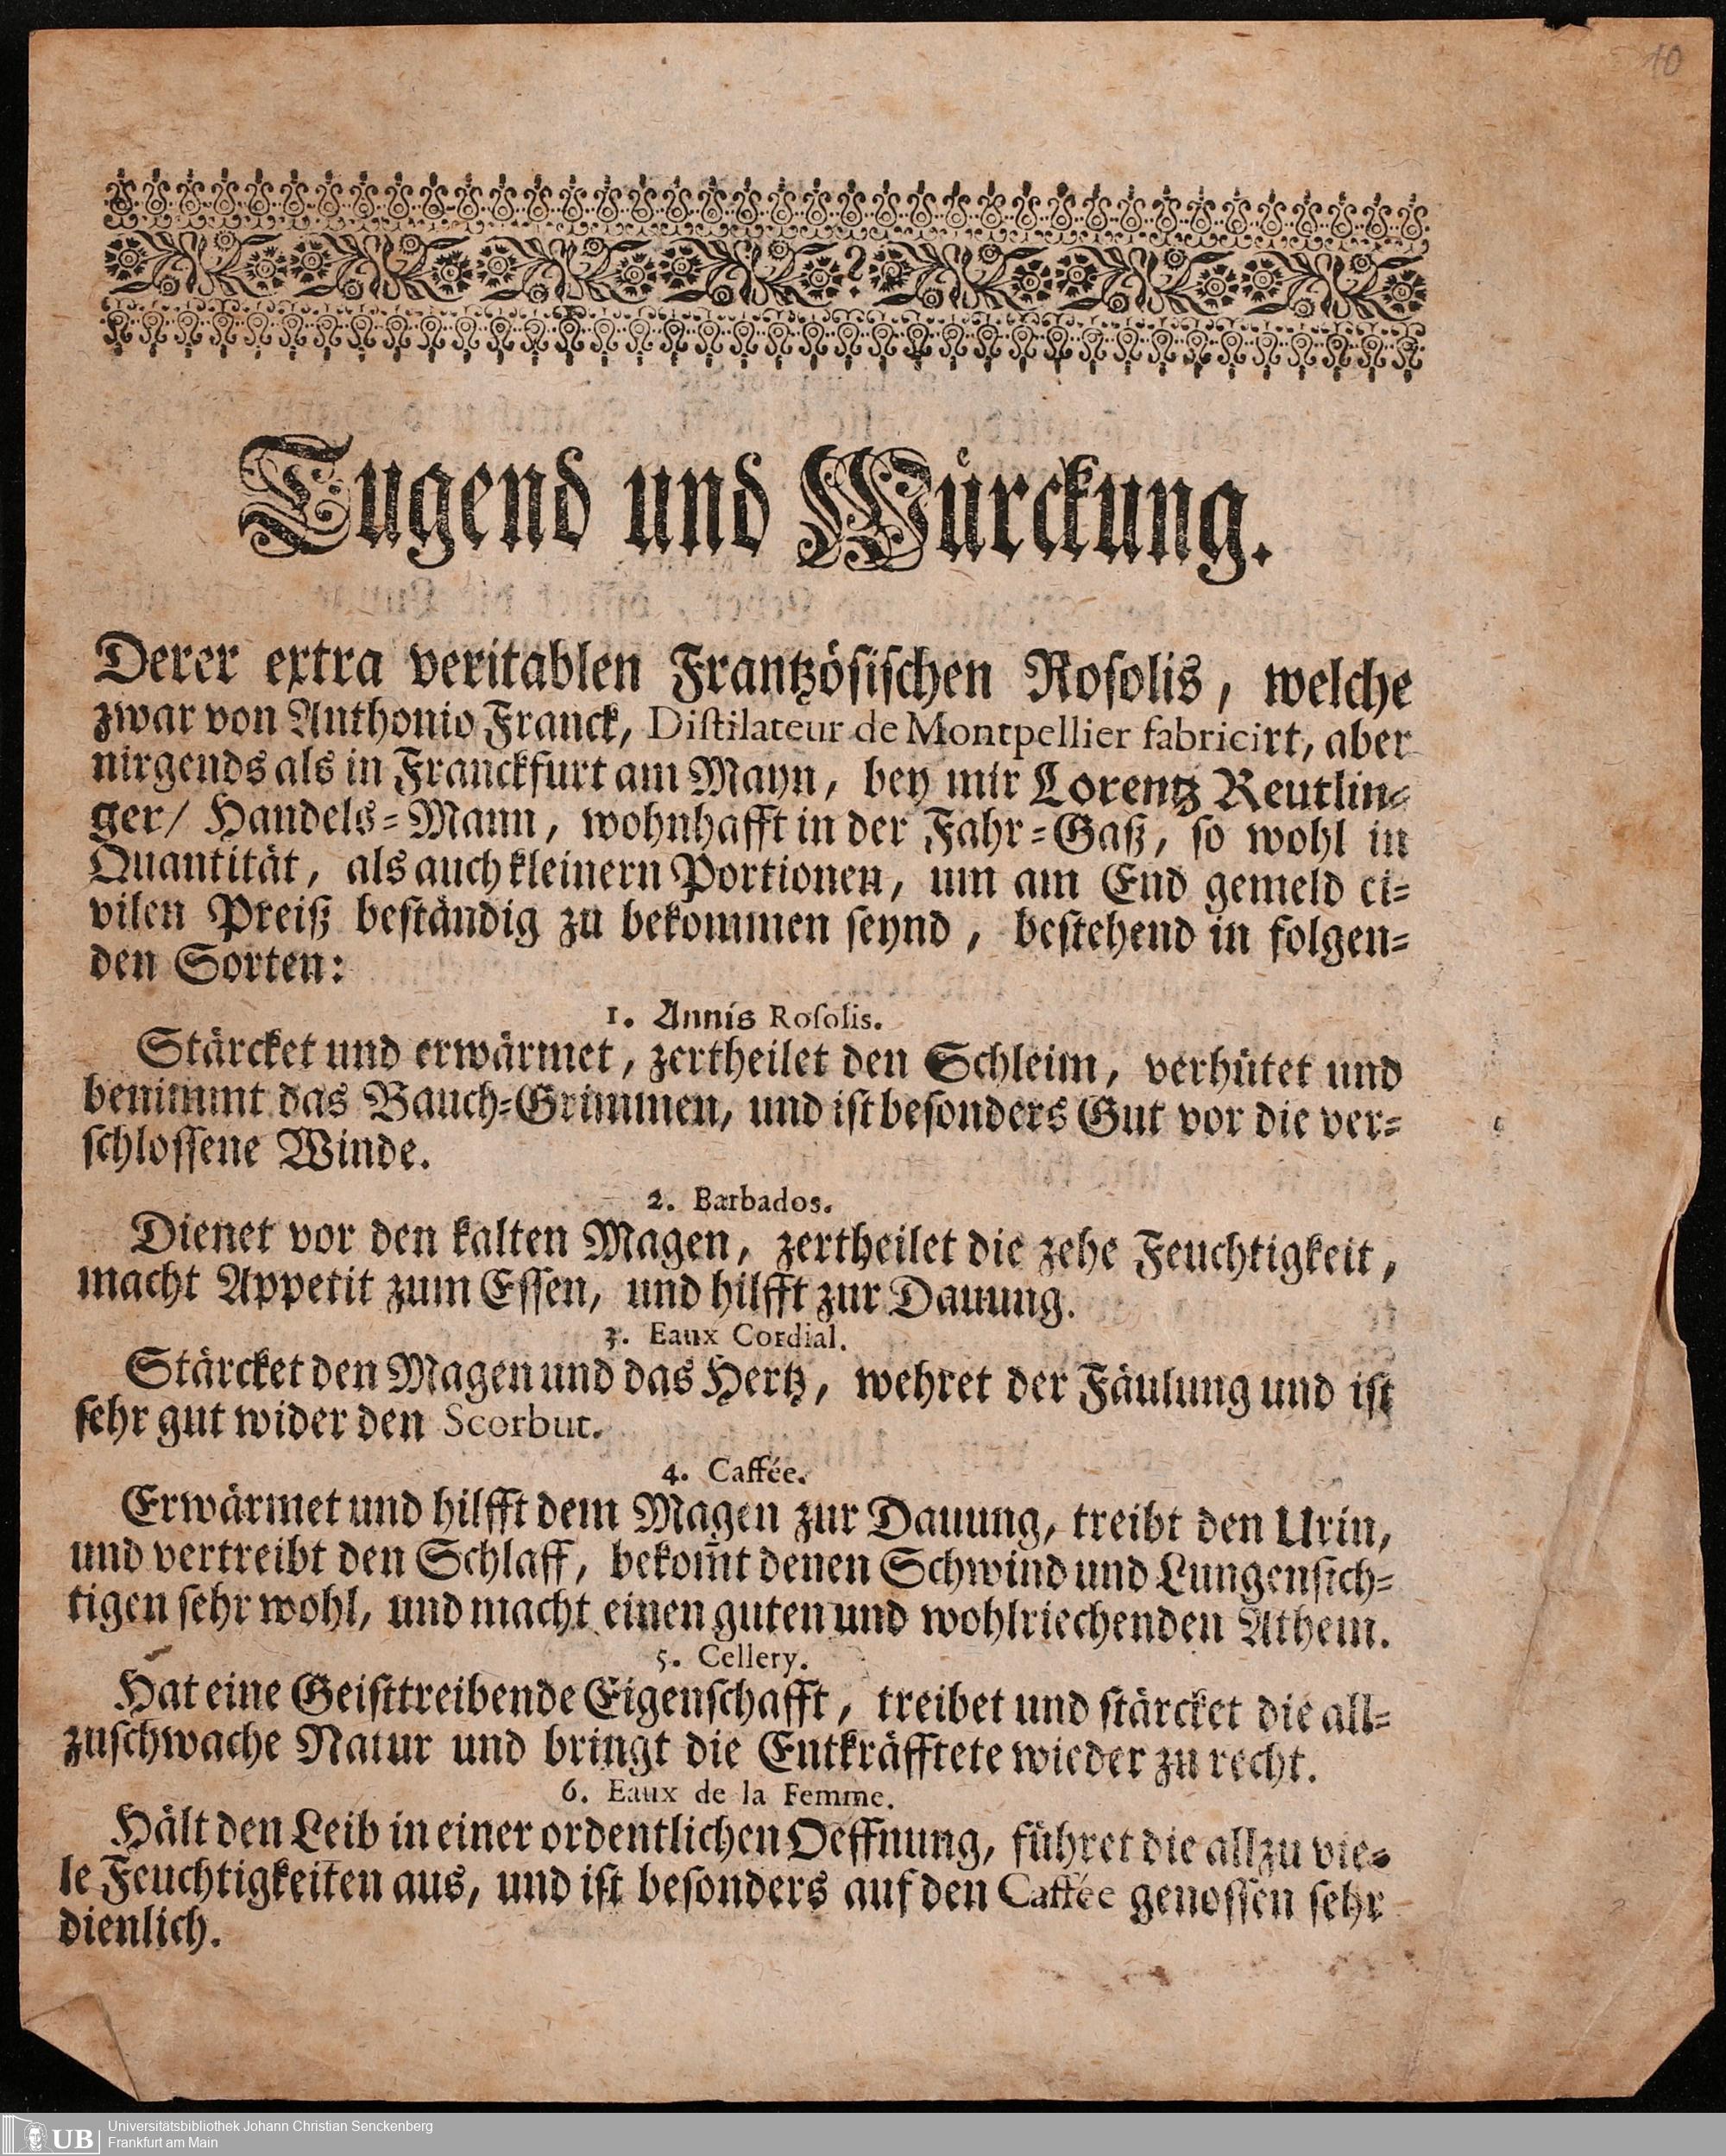 10
Tugend und Würckung.
Derer extra veritablen Frantzösischen Rosolis, welche
zwar von Anthonio Franck, Distilateur de Montpellier fabricirt, aber
nirgends als in Franckfurt am Mayn, bey mir Lorentz Reutlin-
ger/ Handels-Mann, wohnhafft in der Fahr-Gaß, so wohl in
Quantität, als auch kleinern Portionen, um am End gemeld ci-
vilen Preiß beständig zu bekommen seynd, bestehend in folgen-
den Sorten:
1. Annis Rosolis.
Stärcket und erwärmet, zertheilet den Schleim, verhütet und
benimmt das Bauch-Grimmen, und ist besonders Gut vor die ver-
schlossene Winde.
2. Barbados.
Dienet vor den kalten Magen, zertheilet die zehe Feuchtigkeit,
macht Appetit zum Essen, und hilfft zur Dauung.
3. Eaux Cordial.
Stärcket den Magen und das Hertz, wehret der Fäulung und ist
sehr gut wider den Scorbut.
4. Caffée.
Erwärmet und hilfft dem Magen zur Dauung, treibt den Urin,
und vertreibt den Schlaff, bekom̃t denen Schwind und Lungensich-
tigen sehr wohl, und macht einen guten und wohlriechenden Athem.
5. Cellery.
Hat eine Geisttreibende Eigenschafft, treibet und stärcket die all-
zuschwache Natur und bringt die Entkräfftete wieder zu recht.
6. Eaux de la Femme.
Hält den Leib in einer ordentlichen Oeffnung, führet die allzu vie-
le Feuchtigkeiten aus, und ist besonders auf den Caffée genossen sehr
dienlich.
UB
Universitätsbibliothek Johann Christian Senckenberg
Frankfurt am Main